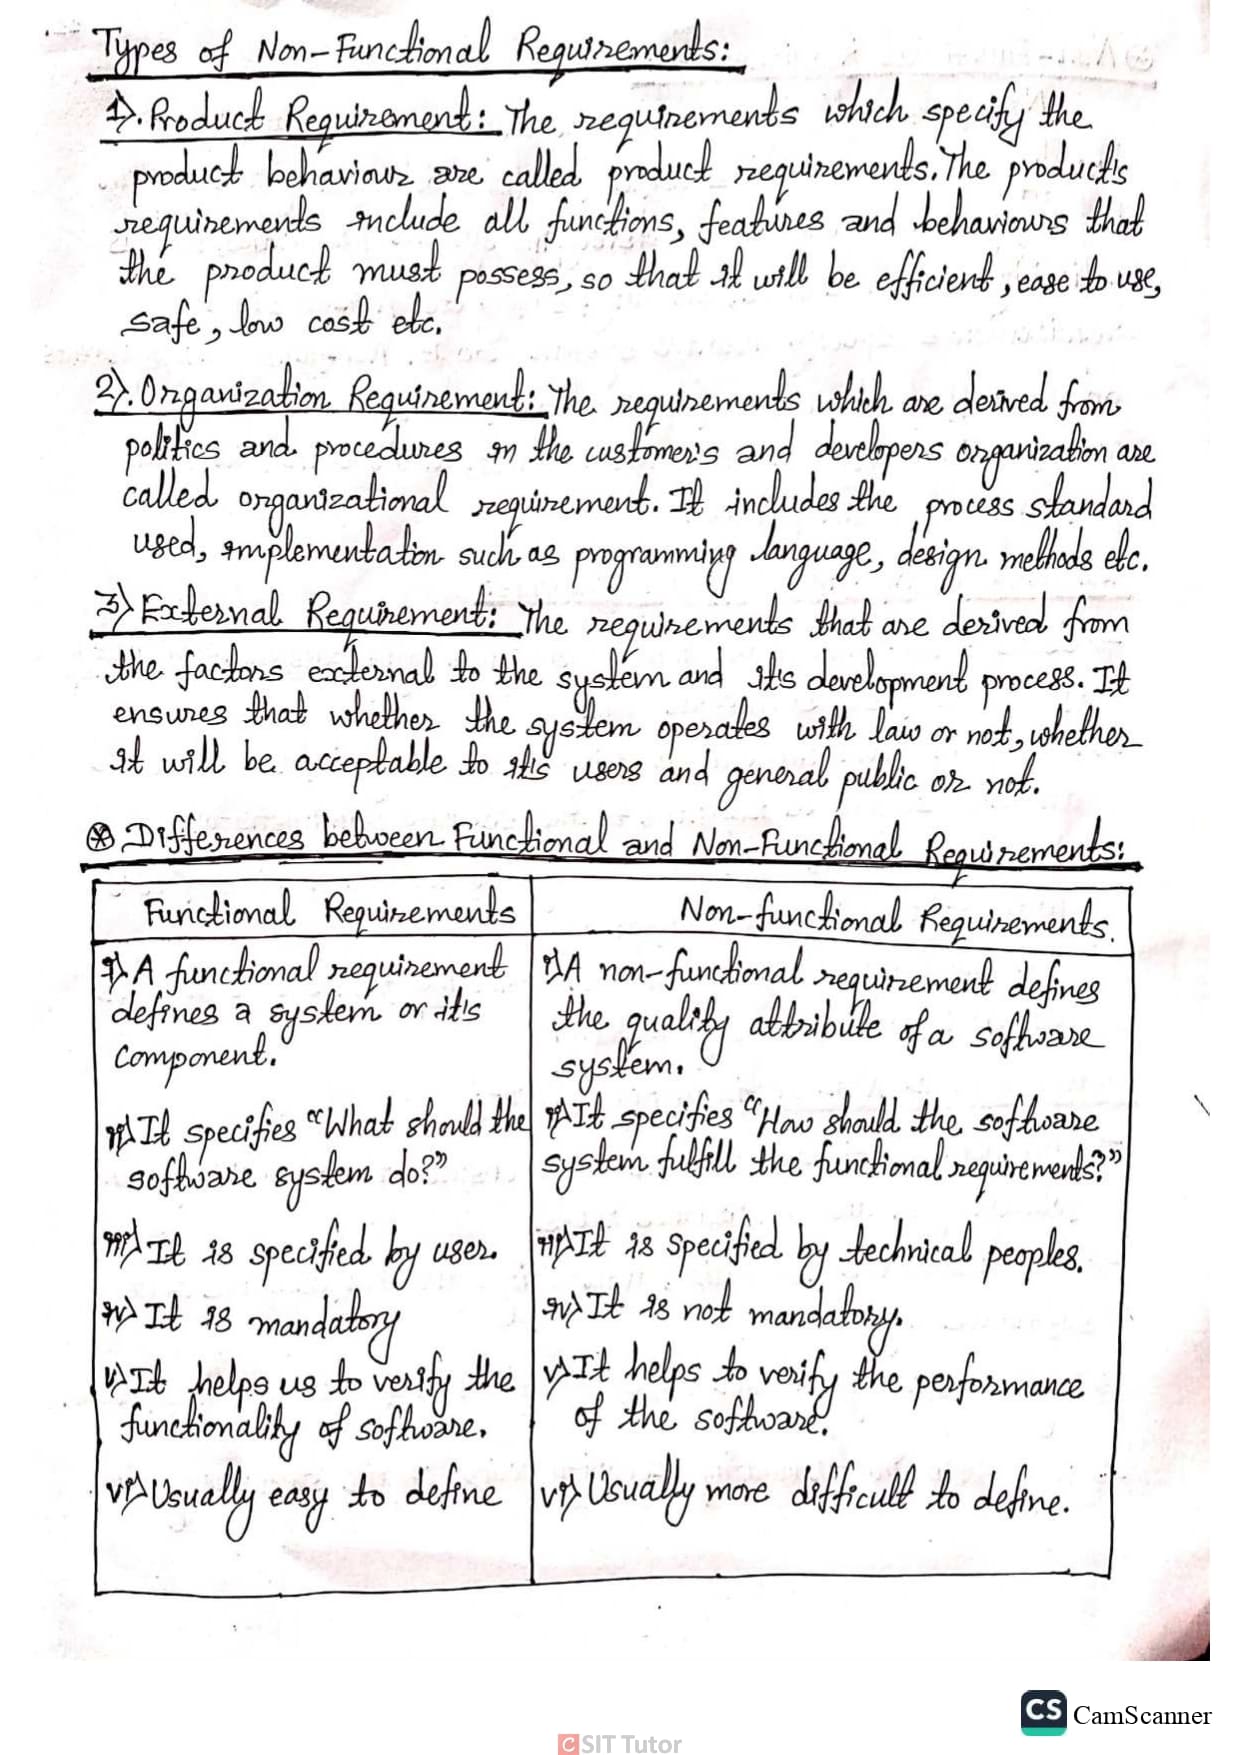 Types of Non-Functional Requirements:
1). Product Requirement: The requirements which specify the
product behaviour are called product requirements. The product's
requirements include all functions, features and behaviours that
the product must possess, so that it will be efficient, ease to use,
safe, low cost etc.
2). Organization Requirement: The requirements which are derived from
politics and procedures in the customer's and developers organization are
called organizational requirement. It includes the process standard
used, implementation such as programming language, design methods etc.
3) External Requirement: The requirements that are derived from
the factors external to the system and it's development process. It
ensures that whether the system operates with law or not, whether
it will be acceptable to it's users and general public or not.
⊛ Differences between Functional and Non-Functional Requirements:
Functional Requirements
i) A functional requirement
defines a system or it's
component.
ii) It specifies "What should the
software system do?"
iii) It is specified by user.
iv) It is mandatory
v) It helps us to verify the
functionality of software.
vi) Usually easy to define
Non-functional Requirements.
i) A non-functional requirement defines
the quality attribute of a software
system.
ii) It specifies "How should the software
system fulfill the functional requirements?"
iii) It is specified by technical peoples.
iv) It is not mandatory.
v) It helps to verify the performance
of the software.
vi) Usually more difficult to define.
CS CamScanner
CSIT Tutor